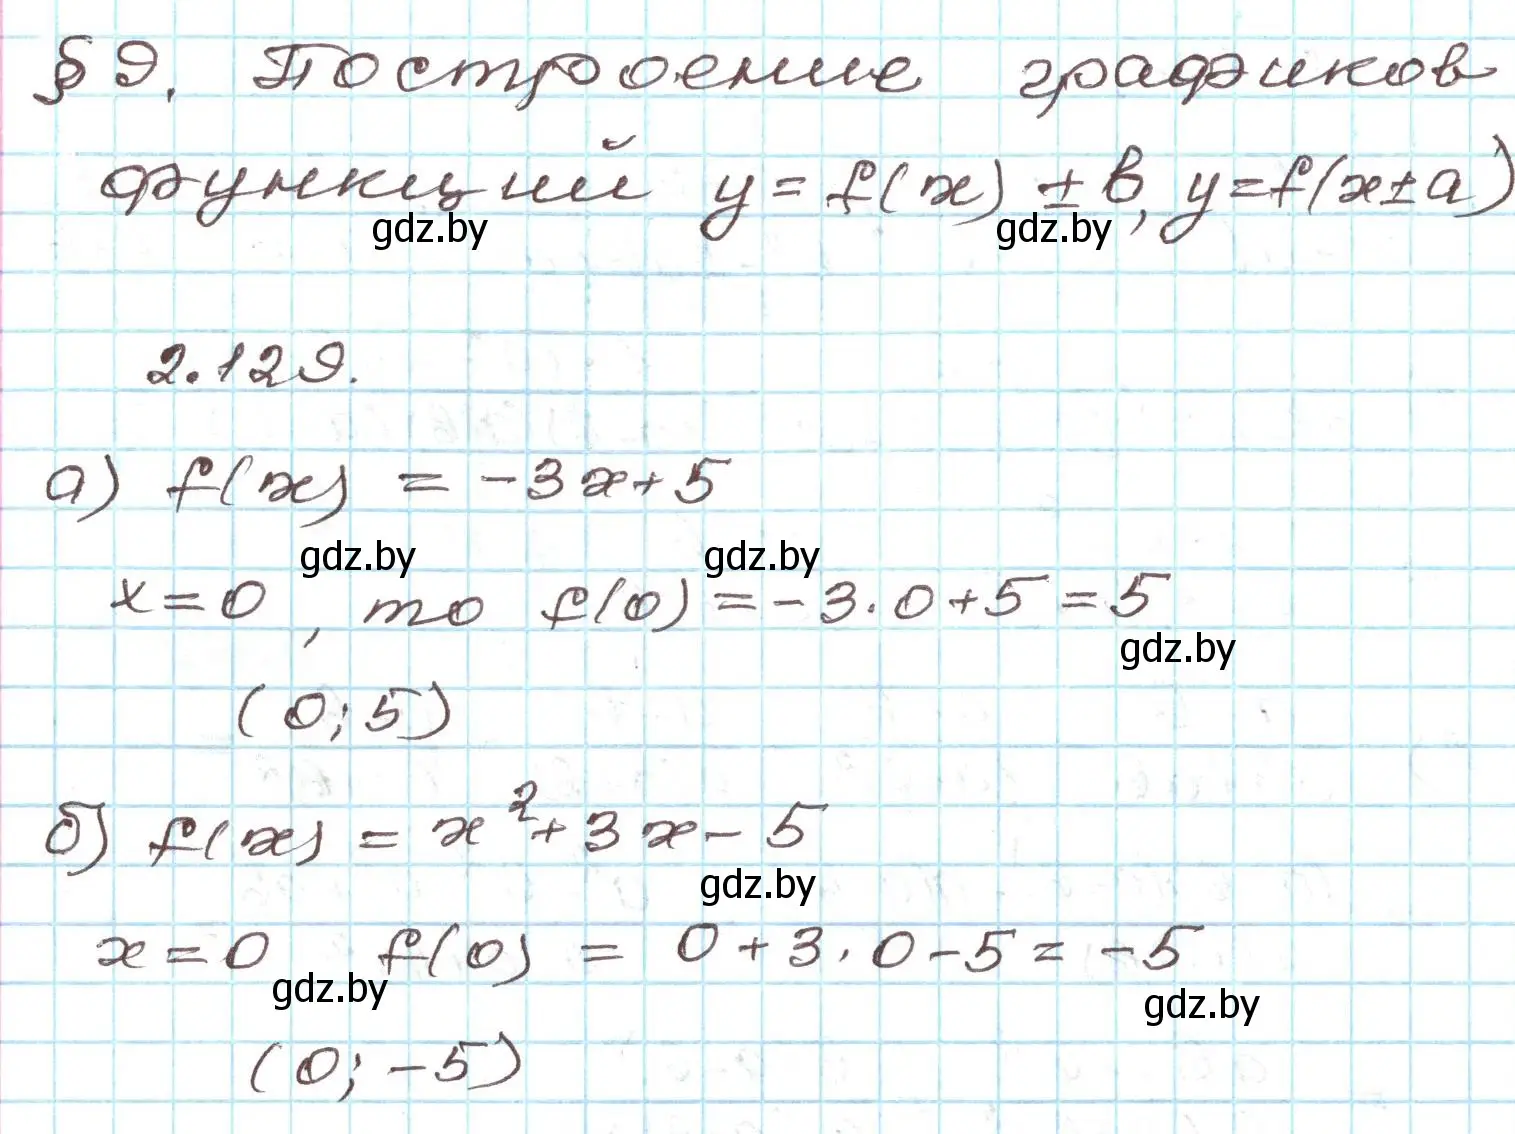 § 9. Построение графиков
функций y = f(x) ± b, y = f(x ± a)
gdz.by gdz.by
2.129.
а) f(x) = -3x + 5
gdz.by gdz.by
x = 0, то f(0) = -3 · 0 + 5 = 5
gdz.by
(0; 5)
б) f(x) = x² + 3x - 5
gdz.by
x = 0 f(0) = 0 + 3 · 0 - 5 = -5
gdz.by gdz.by
(0; -5)